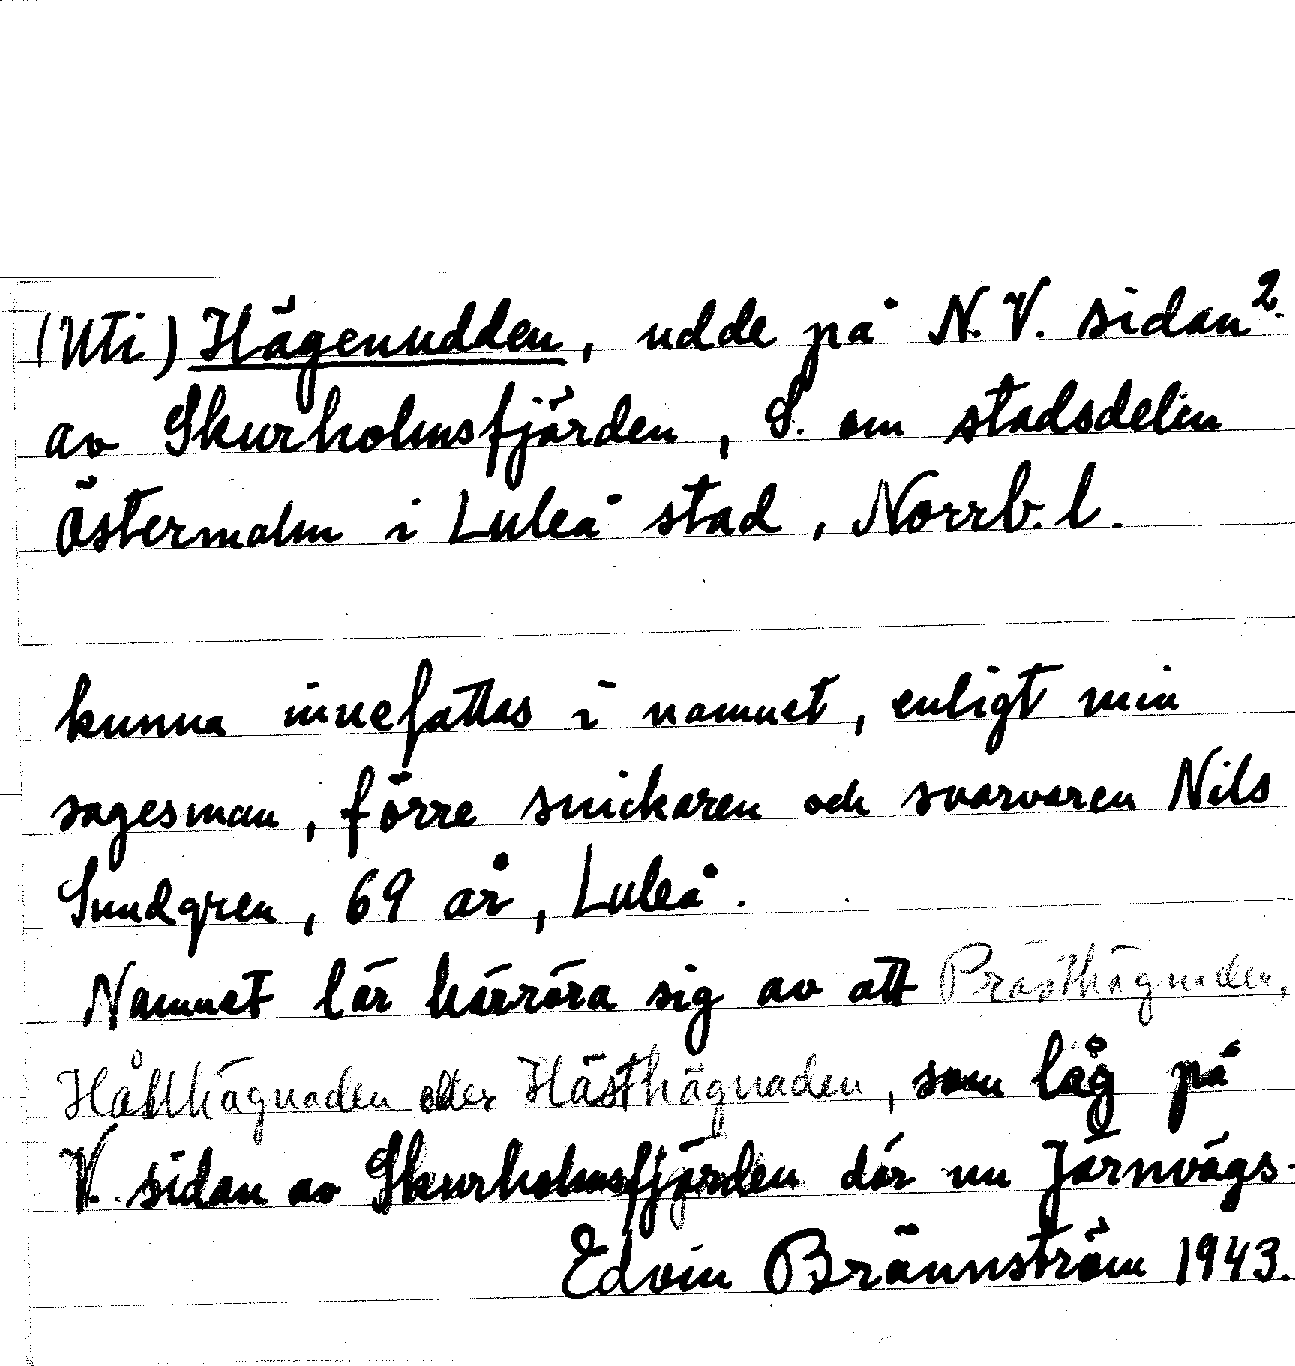 (Uti) Hägenudden, udde på N.V. sidan 2.
av Skurholmsfjärden, S. om stadsdelen
Östermalm i Luleå stad, Norrb. l.
kunna innefattas i namnet, enligt min
sagesman, förre snickaren och svarvaren Nils
Sundgren, 69 år, Luleå.
Namnet lär härröra sig av att Prästhägnaden,
Hållhägnaden eller Hästhägnaden, som låg på
V. sidan av Skurholmsfjärden där nu Järnvägs-
Edvin Brännström 1943.